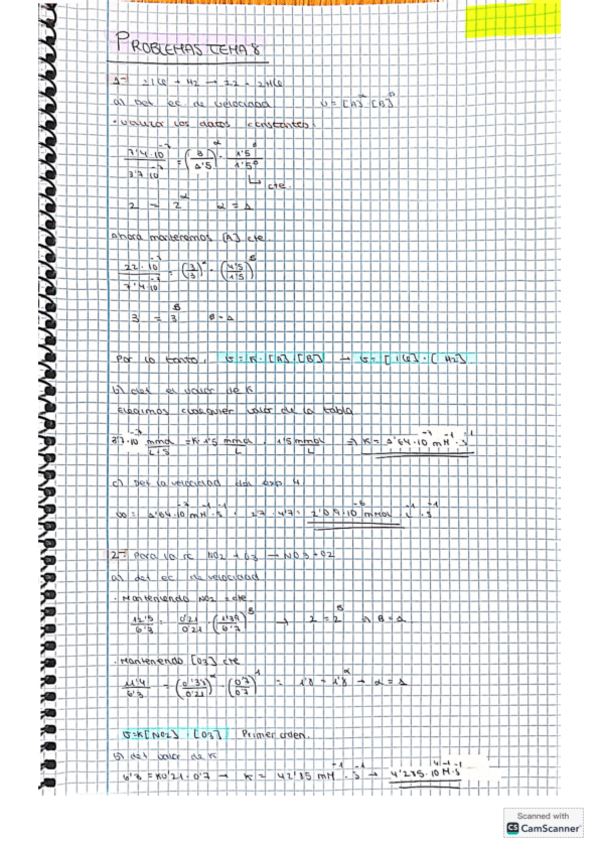 PROBLEMAS TEMA 8
1- 2ICl + H2 → I2 + 2HCl
a) Det ec de velocidad v = [A]^α [B]^β
· Utilizar los datos constantes:
7'4·10^-7 / 3'7·10^-7 = (3/1'5)^α · 1'5^β/1'5^β
↳ cte
2 = 2^α α = 1
Ahora mantenemos [A] cte
22·10^-7 / 7'4·10^-7 = (3/3)^α · (4'5/1'5)^β
3 = 3^β β = 1
Por lo tanto: v = K·[A]·[B] → v = [ICl]·[H2]
b) det el valor de K
Elegimos cualquier valor de la tabla
3'7·10^-7 mmol/L·s = K·1'5 mmol/L · 1'5 mmol/L ⇒ K = 1'64·10^-7 mM^-1·s^-1
c) Det la velocidad del exp 4
v0 = 1'64·10^-7 mM^-1·s^-1 · 2'7·4'7 = 2'09·10^-6 mmol·L^-1·s^-1
2- Para la rc NO2 + O3 → NO3 + O2
a) det ec de velocidad
· Manteniendo NO2 = cte
12'5/6'3 = 0'21/0'21 · (1'39/0'7)^β → 2 = 2^β ⇒ β = 1
· Manteniendo [O3] cte
11'4/6'3 = (0'38/0'21)^α · (0'7/0'7)^1 = 1'8 = 1'8^α → α = 1
v=K[NO2]·[O3] Primer orden.
b) det valor de K
6'3 = K0'21·0'7 → K = 42'85 mM^-1·s^-1 → 4'285·10^4 M^-1·s^-1
Scanned with
CS CamScanner